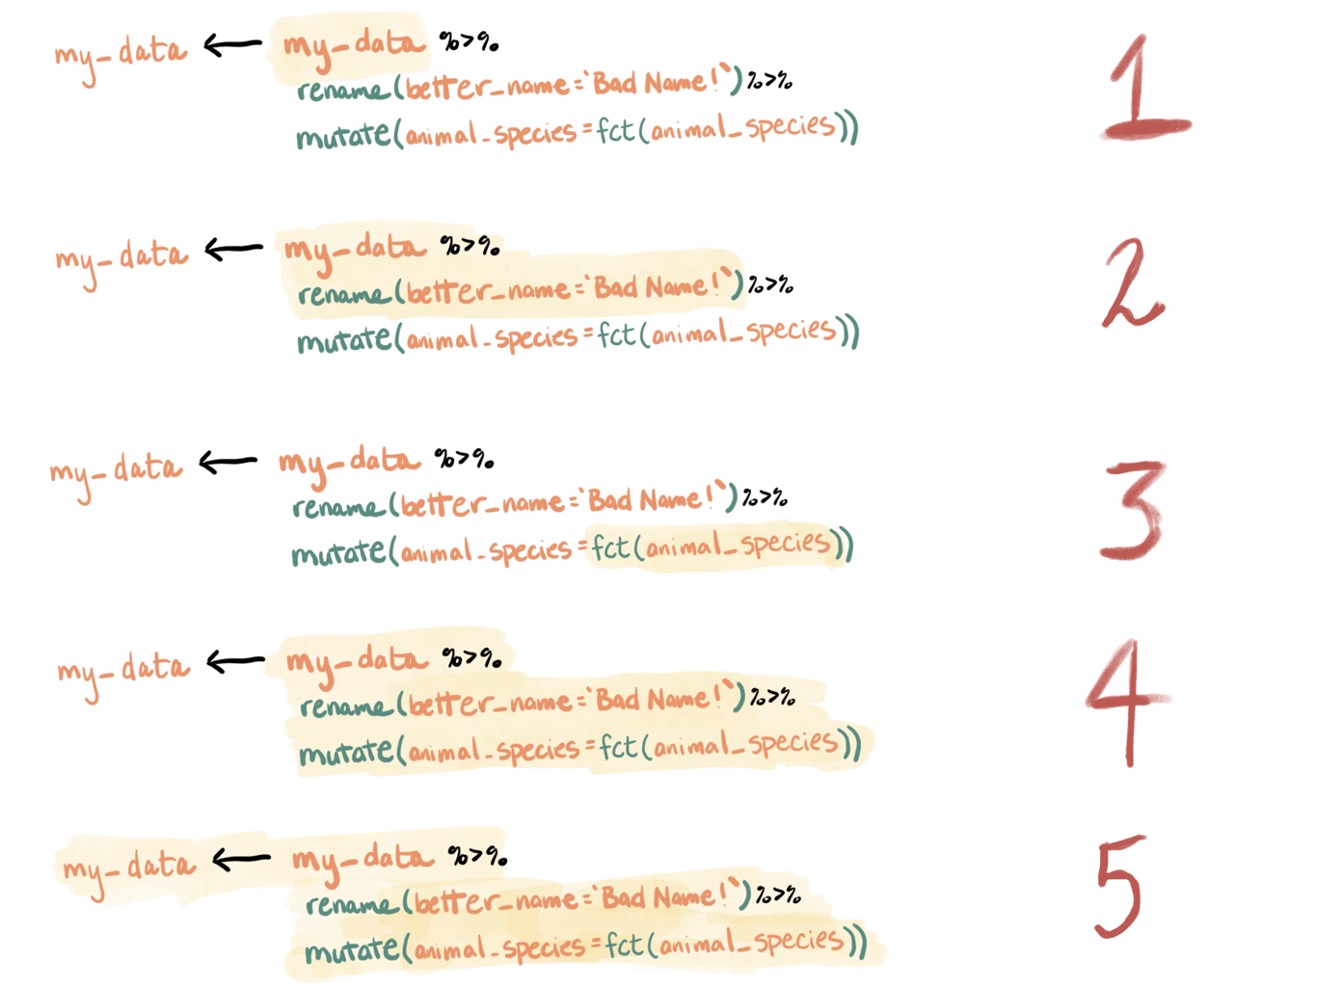 my_data ← my_data %>%
rename(better_name=`Bad Name!`) %>%
mutate(animal_species=fct(animal_species))
1
my_data ← my_data %>%
rename(better_name=`Bad Name!`) %>%
mutate(animal_species=fct(animal_species))
2
my_data ← my_data %>%
rename(better_name=`Bad Name!`) %>%
mutate(animal_species=fct(animal_species))
3
my_data ← my_data %>%
rename(better_name=`Bad Name!`) %>%
mutate(animal_species=fct(animal_species))
4
my_data ← my_data %>%
rename(better_name=`Bad Name!`) %>%
mutate(animal_species=fct(animal_species))
5